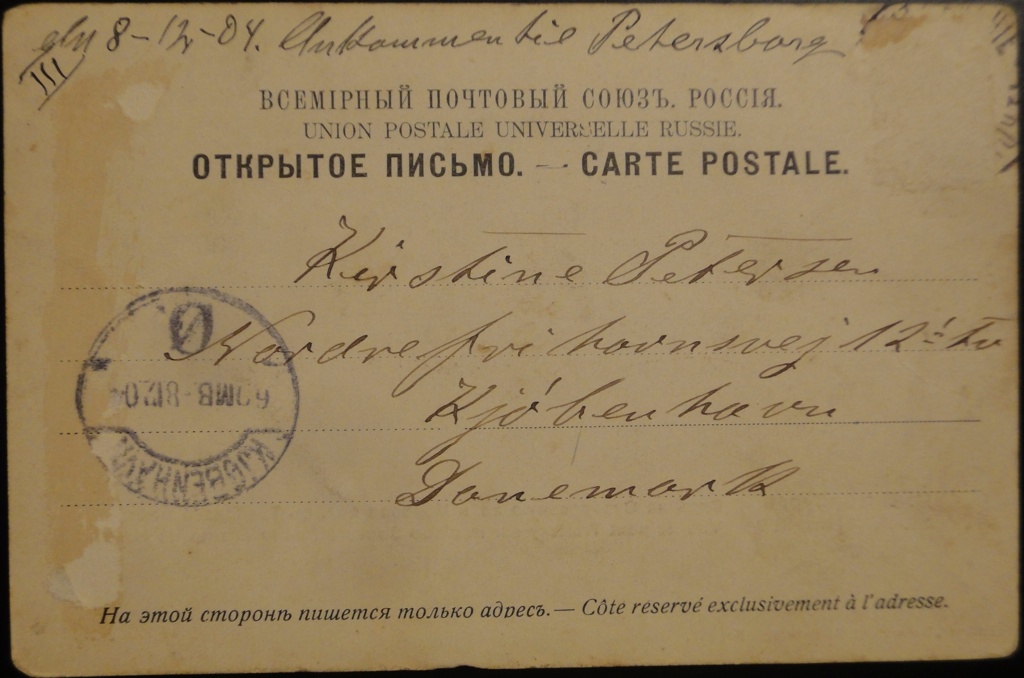 8-12-04. Ankommen til Petersborg
III
ВСЕМІРНЫЙ ПОЧТОВЫЙ СОЮЗЪ. РОССІЯ.
UNION POSTALE UNIVERSELLE RUSSIE.
ОТКРЫТОЕ ПИСЬМО. — CARTE POSTALE.
Kirstine Petersen
Nordre frihavnsvej 12 tv
Kjóbenhavn
Danemark
KJØBENHAVN Ø
69MB-81204
На этой сторонѣ пишется только адресъ. — Côte réservé exclusivement à l'adresse.